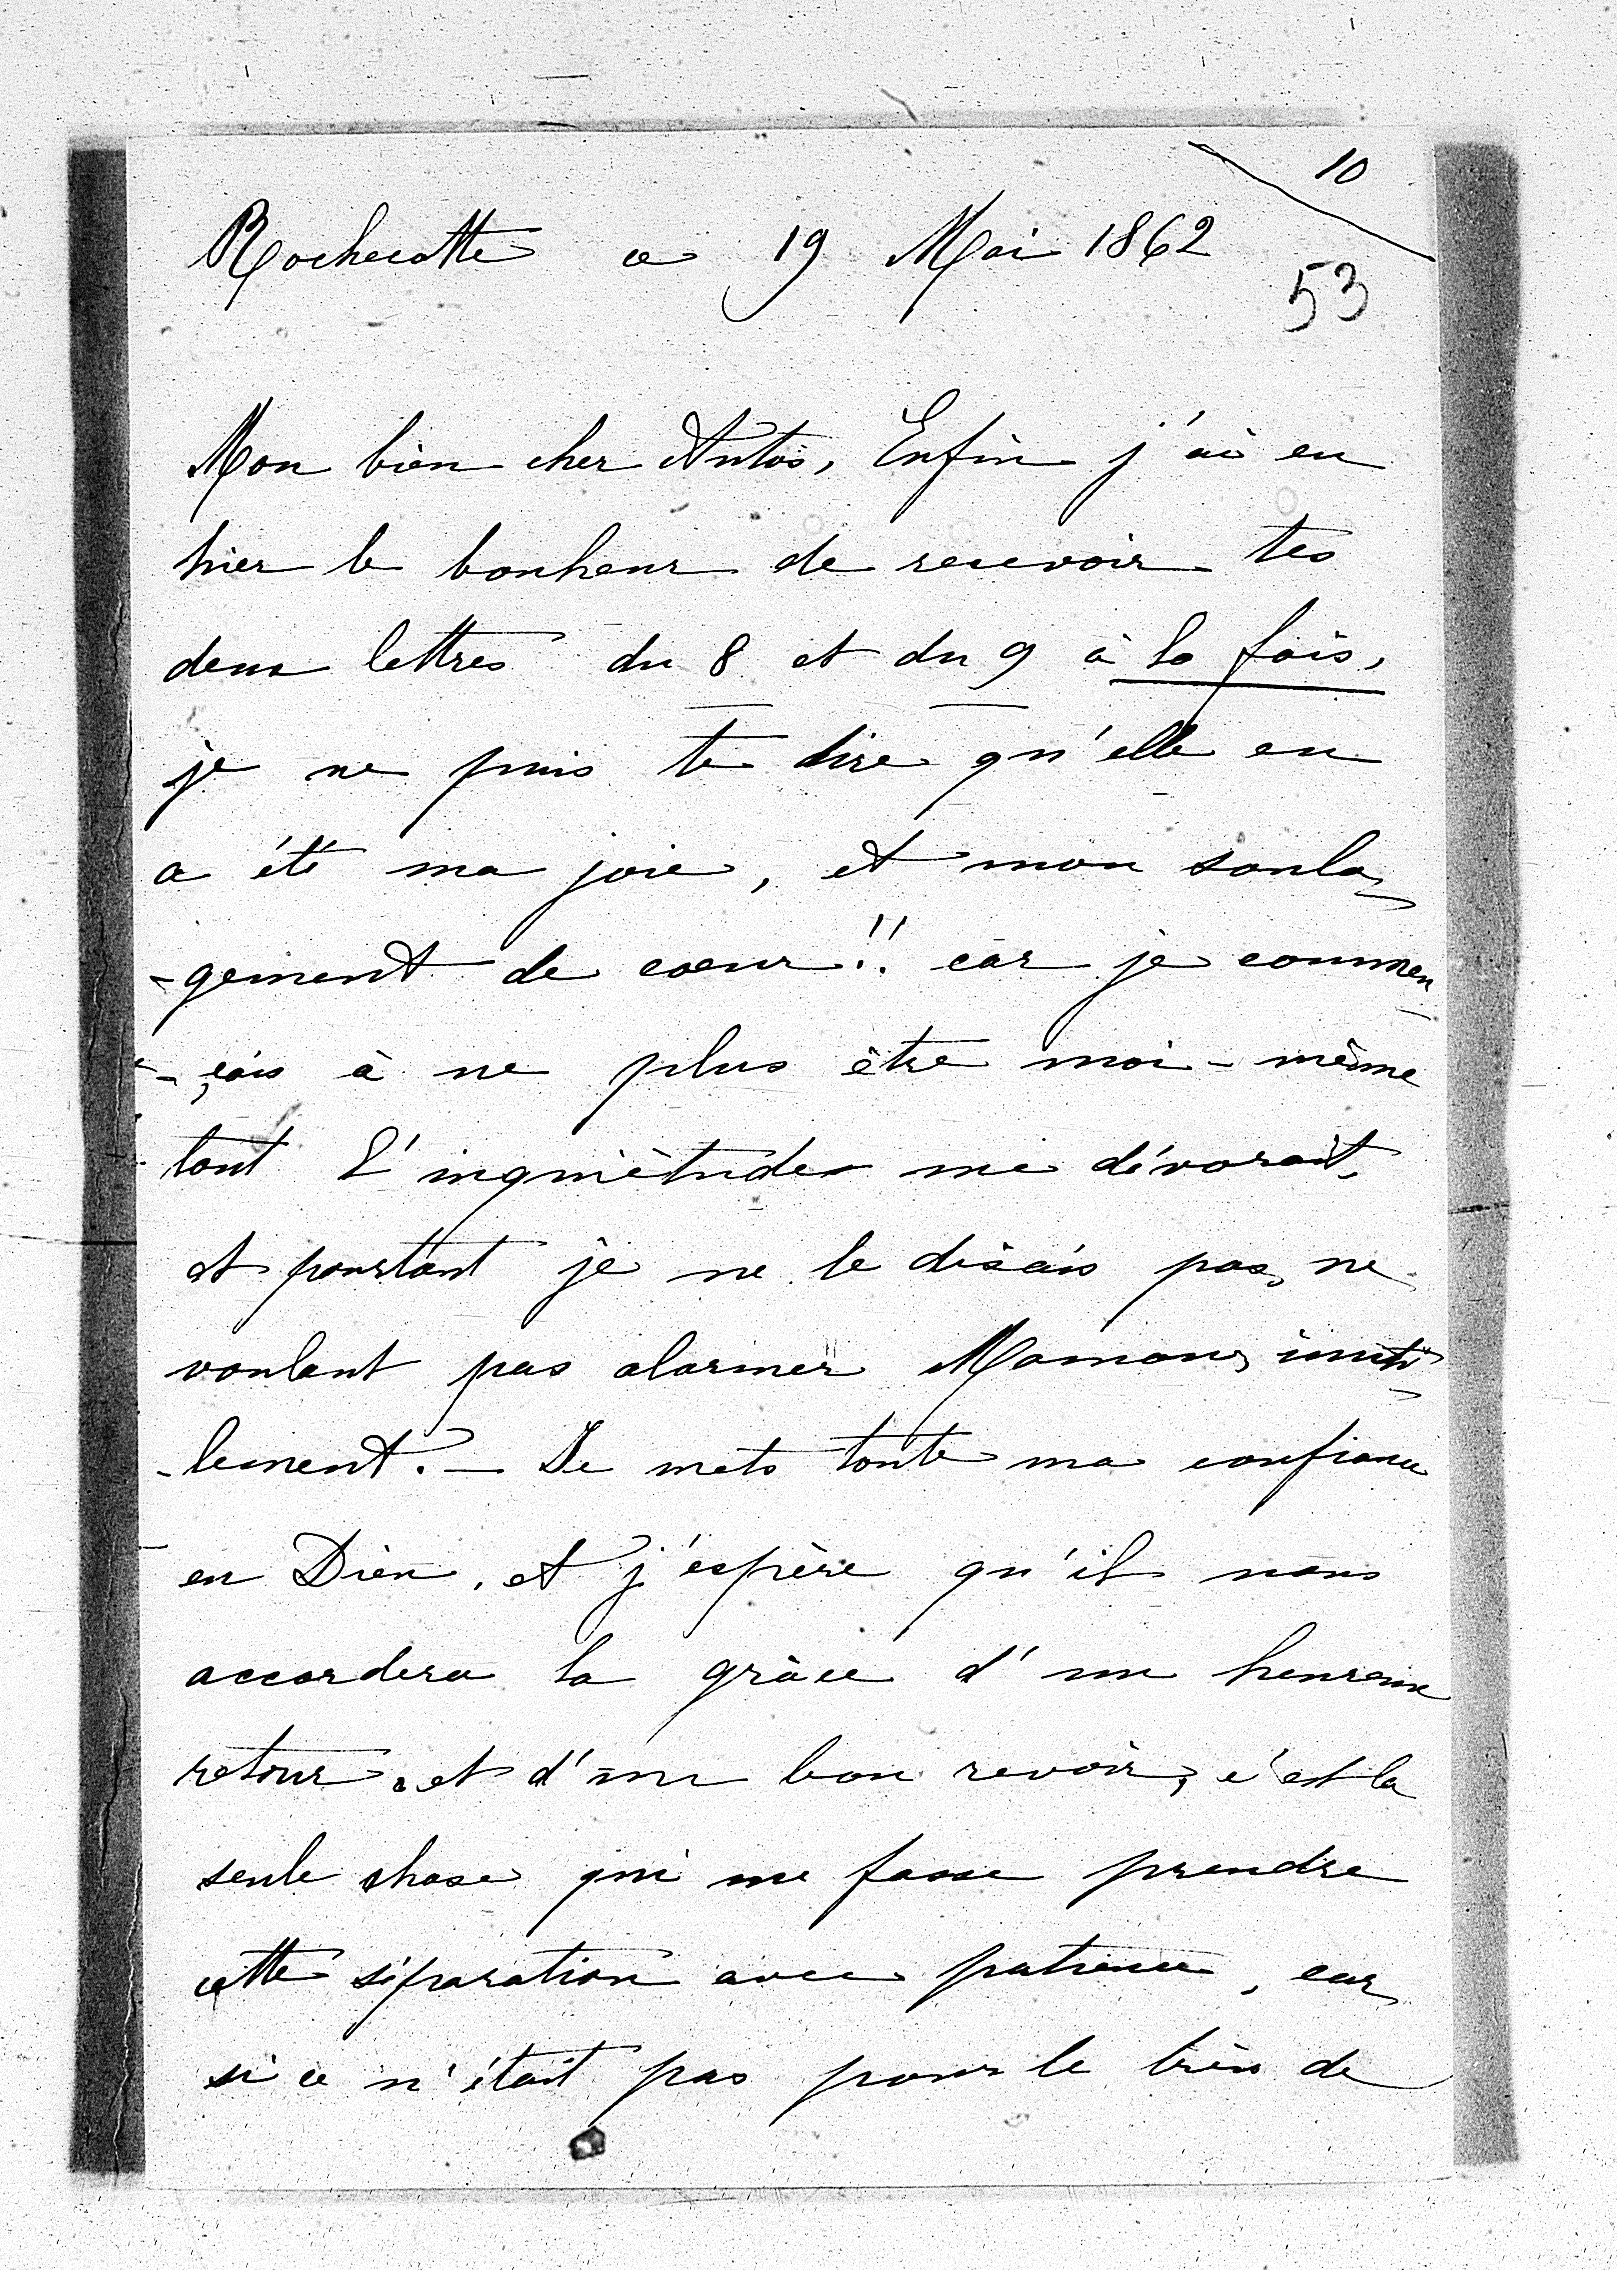 10
Rochecotte ce 19 Mai 1862
53
Mon bien cher Antos, Enfin j'ai eu
hier le bonheur de recevoir tes
deux lettres du 8 et du 9 à la fois,
je ne puis te dire qu'elle en
a été ma joie, et mon soula-
-gement de coeur!! car je commen-
-çais à ne plus être moi-même
tant l'inquiètude me dévorait,
et pourtant je ne le disais pas, ne
voulant pas alarmer Maman, inuti-
-lement. — Je mets toute ma confiance
en Dieu, et j'espère qu'il nous
accordera la grâce d'un heureux
retour, et d'un bon revoir, c'est la
seule chose qui me fasse prendre
cette séparation avec patience, car
si ce n'était pas pour le bien de